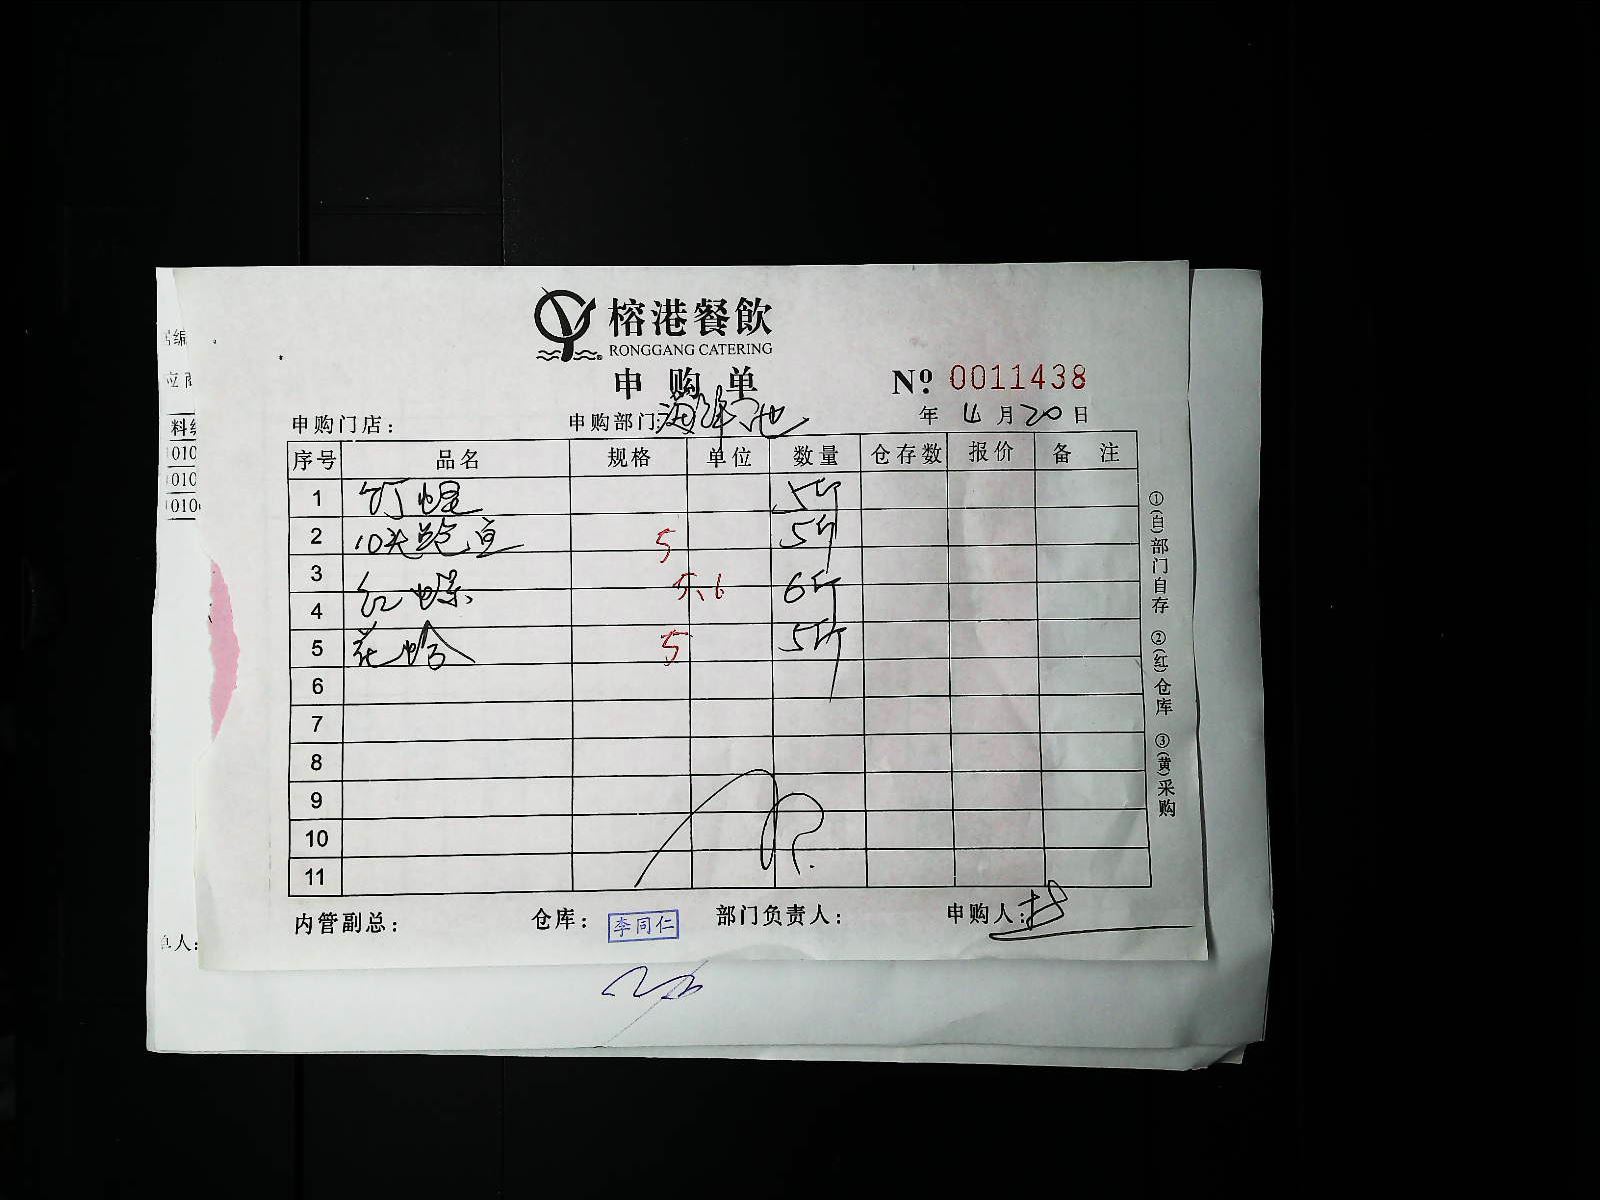 榕港餐飲
RONGGANG CATERING
申购单
Nº 0011438
申购门店: 申购部门:海鲜池 年 4月20日
序号 品名 规格 单位 数量 仓存数 报价 备注
1 5斤
2 10头鲍鱼 5 5斤
3
4 红螺 5、6 6斤
5 花蛤 5 5斤
6
7
8
9
10
11
内管副总: 仓库: 李同仁 部门负责人: 申购人:
①(自)部门自存 ②(红)仓库 ③(黄)采购
编
应商
料编
010
010
010
人: